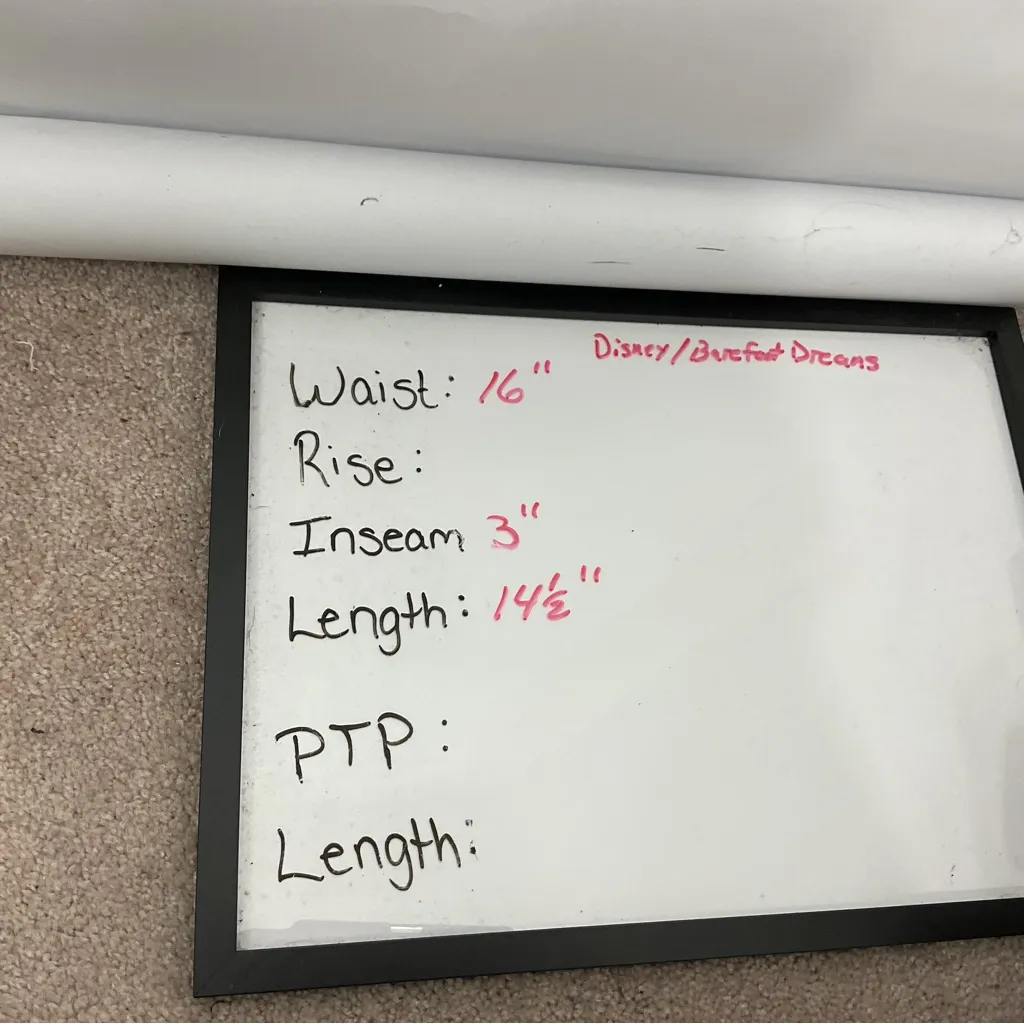 Disney/Barefoot Dreams
Waist: 16"
Rise:
Inseam 3"
Length: 14½"
PTP:
Length: